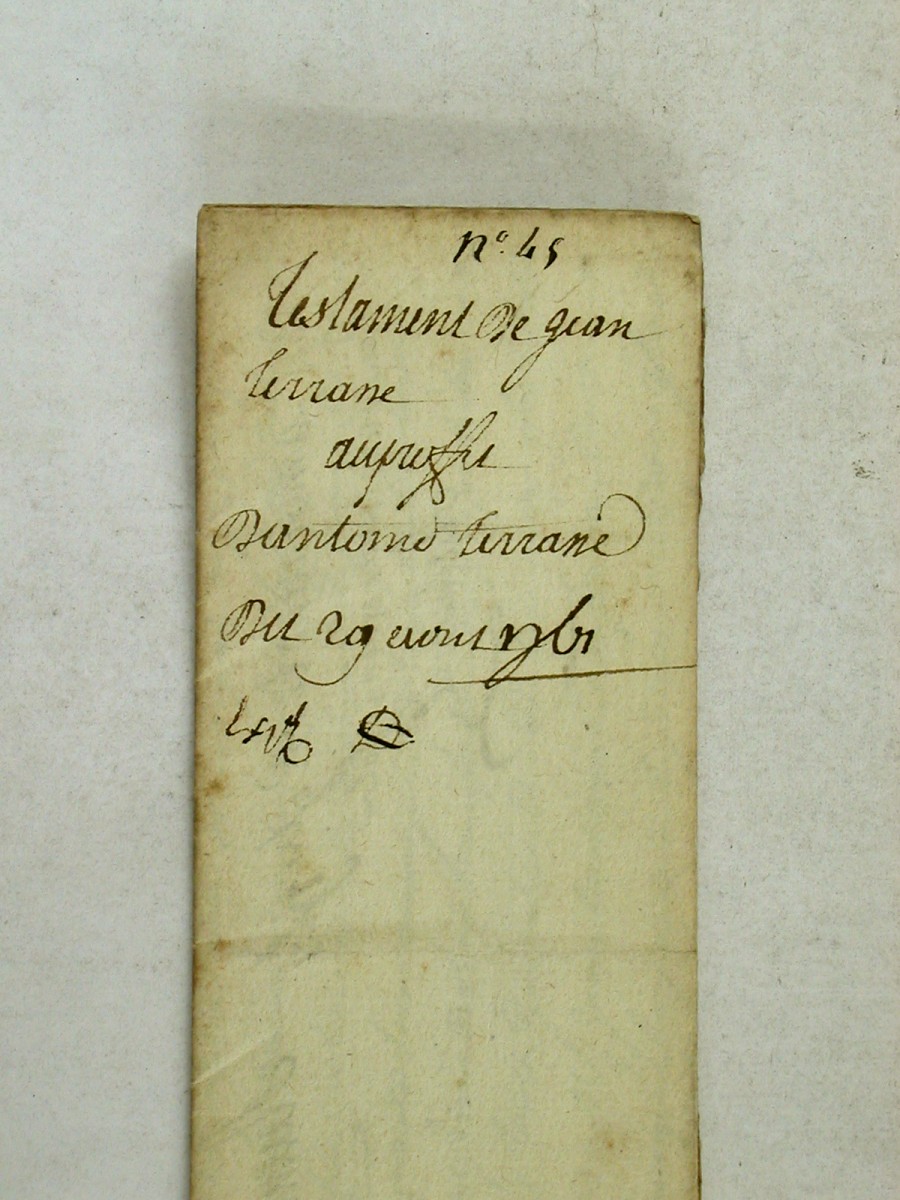 n° 45
Testament de gian
Terrane
auproffit
Dantoine Terrane
Du 29 avout